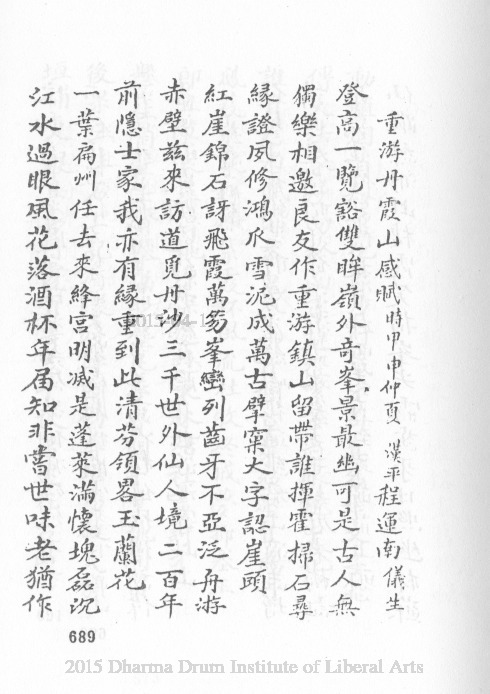 重游丹霞山感賦時甲申仲夏 漢平程運南儀生
登高一覽豁雙眸嶺外奇峯景最幽可是古人無
獨樂相邀良友作重游鎮山留帶誰揮霍掃石尋
緣證夙修鴻爪雪泥成萬古擘窠大字認崖頭
紅崖錦石訝飛霞萬笏峯巒列齒牙不亞泛舟游
赤壁茲來訪道覓丹沙三千世外仙人境二百年
前隱士家我亦有緣重到此清芬領畧玉蘭花
一葉扁州任去來絳宮明滅是蓬萊滿懷塊磊沉
江水過眼風花落酒杯年屆知非嘗世味老猶作
689
2015 Dharma Drum Institute of Liberal Arts